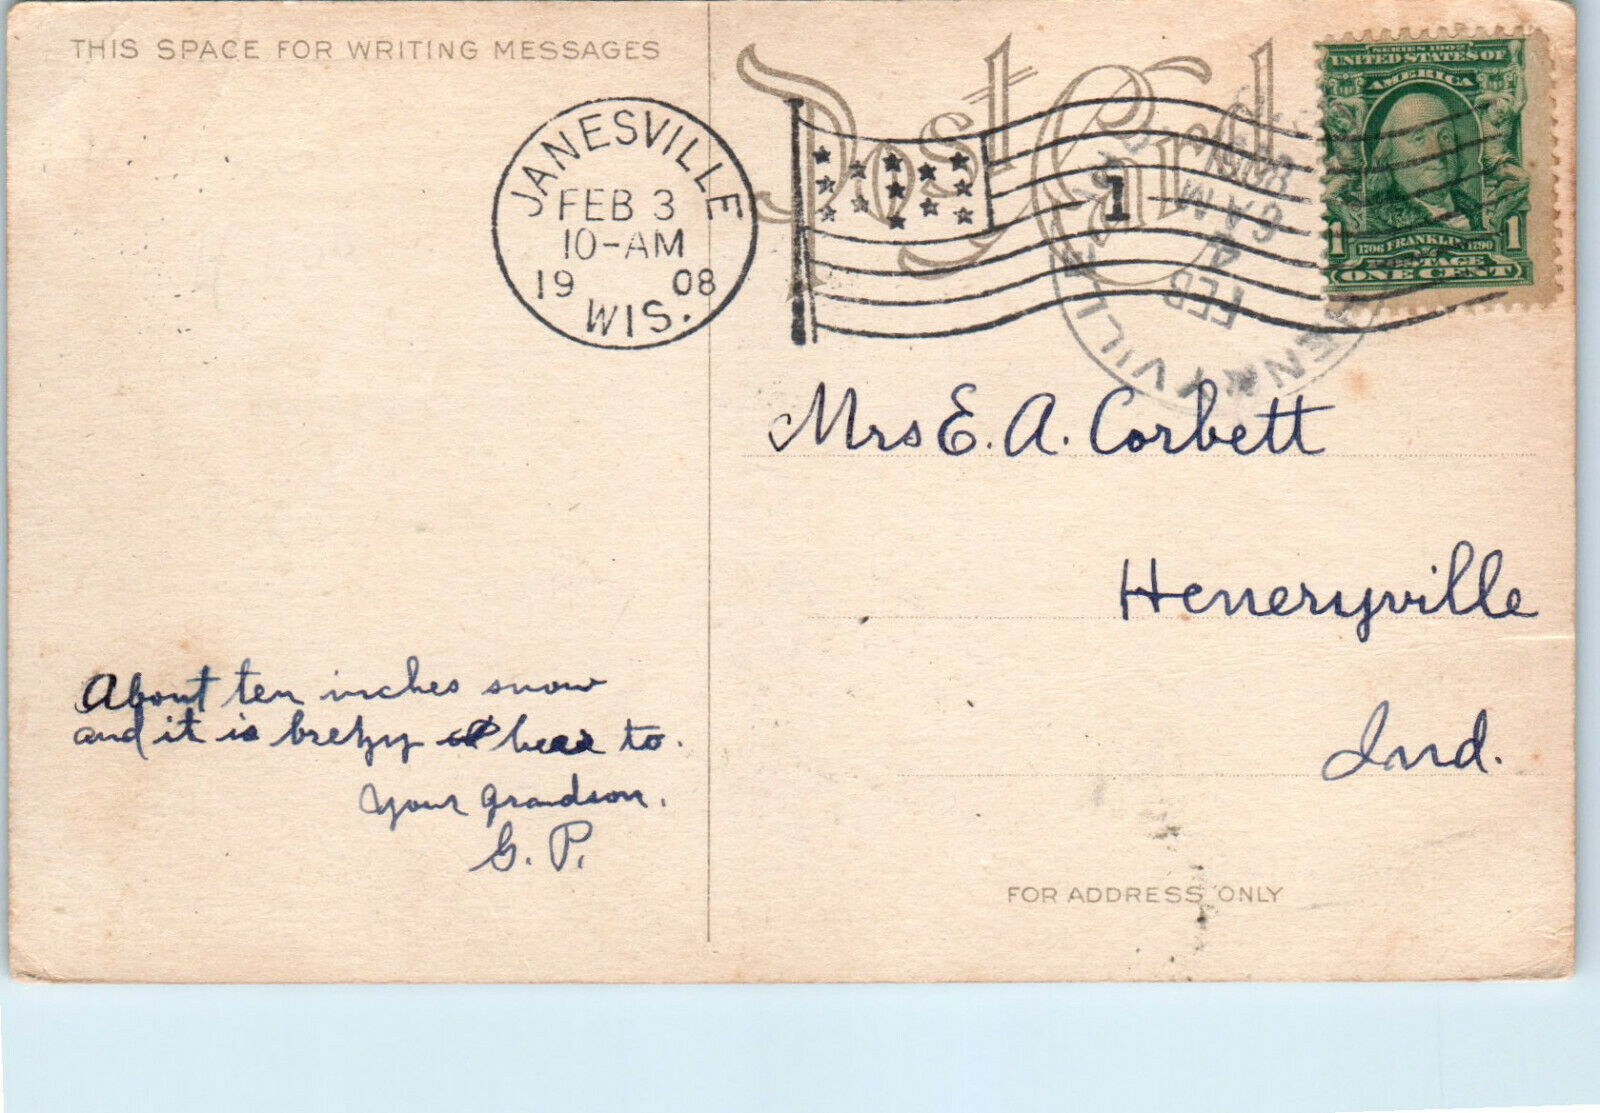 THIS SPACE FOR WRITING MESSAGES
Post Card
SERIES 1902
UNITED STATES OF
AMERICA
1706 FRANKLIN 1790
1 1
POSTAGE
ONE CENT
JANESVILLE
FEB 3
10-AM
19 08
WIS.
1
FEB
4
6 AM
1908
Mrs E. A. Corbett
Heneryville
Ind.
About ten inches snow
and it is brezy here to.
Your grandson.
G. P.
FOR ADDRESS ONLY